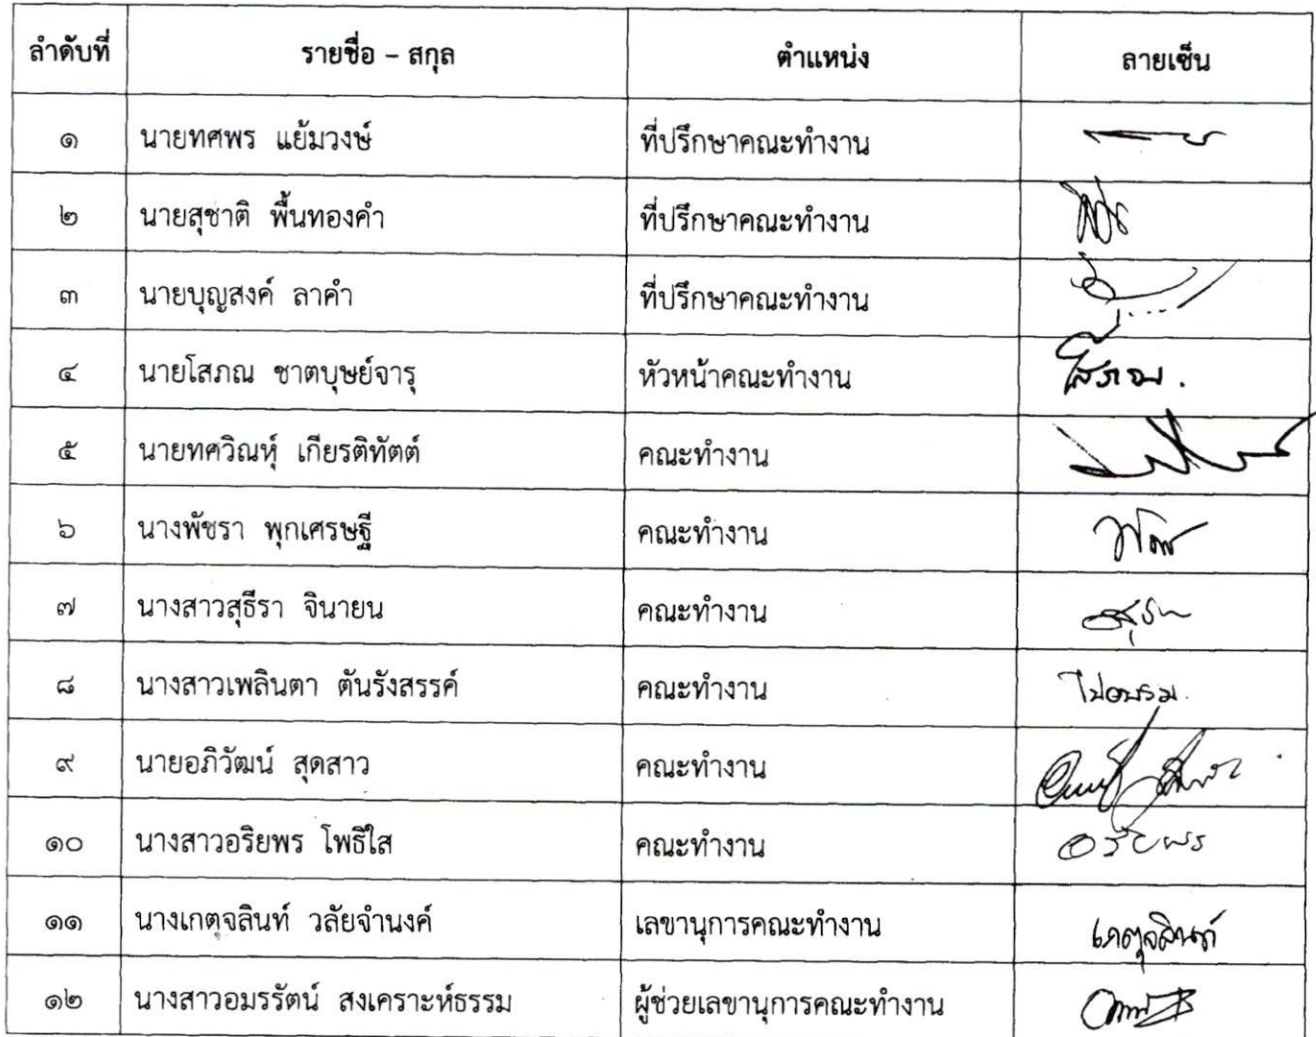 ลำดับที่ รายชื่อ – สกุล ตำแหน่ง ลายเซ็น
๑ นายทศพร แย้มวงษ์ ที่ปรึกษาคณะทำงาน
๒ นายสุชาติ พื้นทองคำ ที่ปรึกษาคณะทำงาน
๓ นายบุญสงค์ ลาคำ ที่ปรึกษาคณะทำงาน
๔ นายโสภณ ชาตบุษย์จารุ หัวหน้าคณะทำงาน โสภณ.
๕ นายทศวิณหุ์ เกียรติทัตต์ คณะทำงาน
๖ นางพัชรา พุกเศรษฐี คณะทำงาน
๗ นางสาวสุธีรา จินายน คณะทำงาน
๘ นางสาวเพลินตา ตันรังสรรค์ คณะทำงาน ไปอบรม.
๙ นายอภิวัฒน์ สุดสาว คณะทำงาน
๑๐ นางสาวอริยพร โพธิใส คณะทำงาน อริยพร
๑๑ นางเกตุจลินท์ วลัยจำนงค์ เลขานุการคณะทำงาน เกตุจลินท์
๑๒ นางสาวอมรรัตน์ สงเคราะห์ธรรม ผู้ช่วยเลขานุการคณะทำงาน